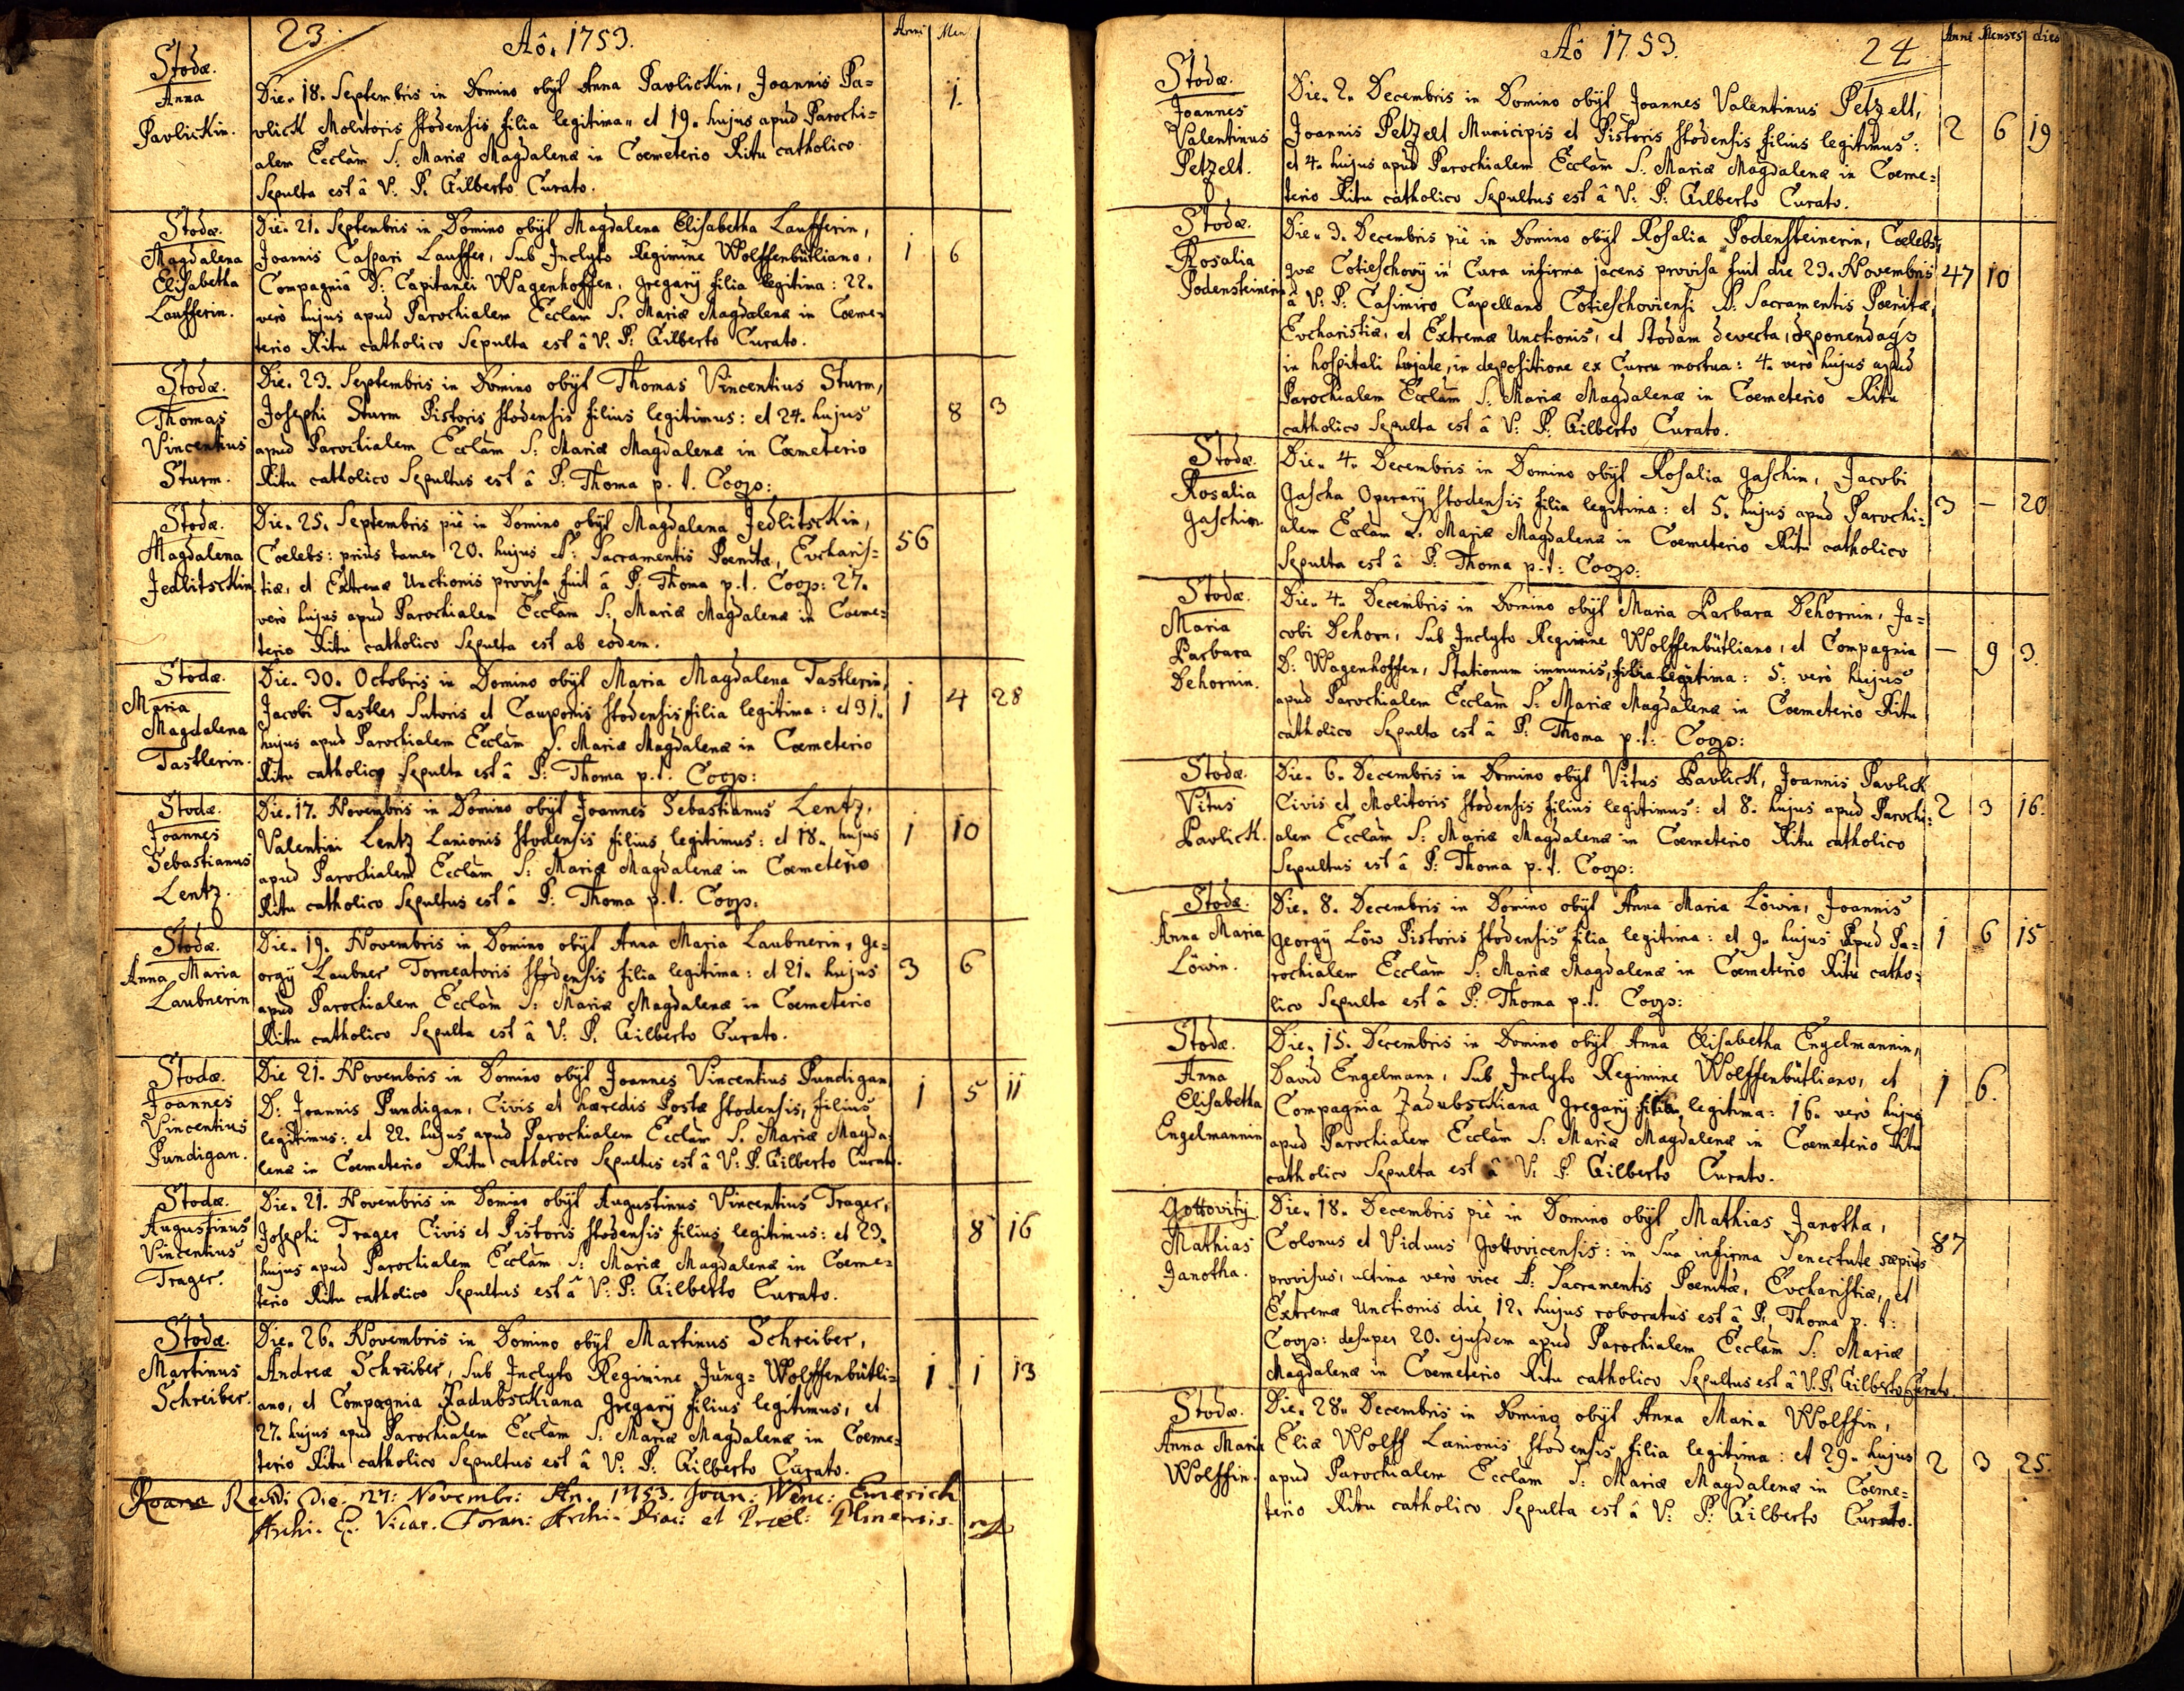 23.
Aô. 1753.
Anni Men
Stodæ.
Anna
Pavlickin.
Die. 18. Septembris in Domino obÿt Anna Pavlickin, Joannis Pa=
vlick Molitoris Stodensis filia legitima, et 19. hujus apud Parochi=
alem Ecclam S: Mariæ Magdalenæ in Coemeterio Ritu catholico
Sepulta est â V: P. Gilberto Curato.
1.
Stodæ.
Magdalena
Elisabetha
Laufferin.
Die. 21. Septembris in Domino obÿt Magdalena Elisabetha Laufferin,
Joannis Caspari Lauffer, sub Inclyto Regimine Wolffenbütliano,
Compagniâ D: Capitanei Wagenhoffen, gregarÿ filia legitima: 22.
verò hujus apud Parochialem Ecclam S. Mariæ Magdalenæ in Coeme=
terio Ritu catholico Sepulta est â V: P: Gilberto Curato.
1 6
Stodæ.
Thomas
Vincentius
Sturm.
Die. 23. Septembris in Domino obÿt Thomas Vincentius Sturm,
Josephi Sturm Pistoris Stodensis filius legitimus: et 24. hujus
apud Parochialem Ecclam S: Mariæ Magdalenæ in Coemeterio
Ritu catholico Sepultus est â P: Thoma p. t. Coop:
8 3
Stodæ.
Magdalena
Jedlitschkin
Die. 25. Septembris piè in Domino obÿt Magdalena Jedlitschkin,
Coelebs: priùs tamen 20. hujus S: Sacramentis Poenitæ, Eucharis=
tiæ, et Extremæ Unctionis provisa fuit â P: Thoma p.t. Coop: 27.
verò hujus apud Parochialem Ecclam S: Mariæ Magdalenæ in Coeme=
terio Ritu catholico Sepulta est ab eodem.
56
Stodæ.
Maria
Magdalena
Tastlerin.
Die. 30. Octobris in Domino obÿt Maria Magdalena Tastlerin,
Jacobi Tastler Sutoris et Cauponis Stodensis filia legitima: et 31.
hujus apud Parochialem Ecclam S. Mariæ Magdalenæ in Coemeterio
Ritu catholico Sepulta est â P: Thoma p.t. Coop:
1 4 28
Stodæ.
Joannes
Sebastianus
Lentz.
Die. 17. Novembris in Domino obÿt Joannes Sebastianus Lentz,
Valentini Lentz Lanionis Stodensis filius legitimus: et 18. hujus
apud Parochialem Ecclam S: Mariæ Magdalenæ in Coemeterio
Ritu catholico Sepultus est â P: Thoma p.t. Coop.
1 10
Stodæ.
Anna Maria
Laubnerin
Die. 19. Novembris in Domino obÿt Anna Maria Laubnerin, Ge=
orgÿ Laubner Torneatoris Stodensis filia legitima: et 21. hujus
apud Parochialem Ecclam S: Mariæ Magdalenæ in Coemeterio
Ritu catholico Sepulta est â V: P. Gilberto Curato.
3 6
Stodæ.
Joannes
Vincentius
Pundigan.
Die 21. Novembris in Domino obÿt Joannes Vincentius Pundigan
D: Joannis Pundigan, Civis et hæredis Postæ Stodensis, filius
legitimus: et 22. hujus apud Parochialem Ecclam S. Mariæ Magda=
lenæ in Coemeterio Ritu catholico Sepultus est â V: P. Gilberto Curato.
1 5 11
Stodæ.
Augustinus
Vincentius
Trager.
Die. 21. Novembris in Domino obÿt Augustinus Vincentius Trager,
Josephi Trager Civis et Pistoris Stodensis filius legitimus: et 23.
hujus apud Parochialem Ecclam S: Mariæ Magdalenæ in Coeme=
terio Ritu catholico Sepultus est â V: P: Gilberto Curato.
8 16
Stodæ.
Martinus
Schreiber.
Die. 26. Novembris in Domino obÿt Martinus Schreiber,
Andreæ Schreiber, sub Inclyto Regimine Jung=Wolffenbütli=
ano, et Compagnia Radubschkiana gregarÿ filius legitimus, et
27. hujus apud Parochialem Ecclam S. Mariæ Magdalenæ in Coeme=
terio Ritu catholico Sepultus est â V: P: Gilberto Curato.
1 1 13
Revidi die. 27: Novembr: An. 1753. Joan: Wenc: Emerich
Archi- Vicar. Foran: Archi-Diac: et Præl: Plsnensis. mp
Aô 1753.
24
Anni Menses dies
Stodæ.
Joannes
Valentinus
Petzelt.
Die. 2. Decembris in Domino obÿt Joannes Valentinus Petzelt,
Joannis Petzelt Municipis et Pistoris Stodensis filius legitimus:
et 4. hujus apud Parochialem Ecclam S. Mariæ Magdalenæ in Coeme=
terio Ritu catholico Sepultus est â V: P: Gilberto Curato.
2 6 19
Stodæ.
Rosalia
Podensteinerin
Die. 3. Decembris piè in Domino obÿt Rosalia Podensteinerin, Coelebs,
quæ Cotieschovÿ in Cura infirma jacens provisa fuit die 29. Novembris
â V: P: Casimiro Capellano Cotieschoviensi S: Sacramentis Poenitæ,
Eucharistiæ, et Extremæ Unctionis, et Stodam devecta, deponendaqs
in hospitali hujate, in depositione ex Curru mortua: 4. verò hujus apud
Parochialem Ecclam S. Mariæ Magdalenæ in Coemeterio Ritu
catholico Sepulta est â V: P: Gilberto Curato.
47 10
Stodæ.
Rosalia
Gaschin.
Die. 4. Decembris in Domino obÿt Rosalia Gaschin, Jacobi
Gascha Operarÿ Stodensis filia legitima: et 5. hujus apud Parochi=
alem Ecclam S. Mariæ Magdalenæ in Coemeterio Ritu catholico
Sepulta est â P: Thoma p.t: Coop:
3 — 20
Stodæ.
Maria
Barbara
Dehornin.
Die. 4. Decembris in Domino obÿt Maria Barbara Dehornin, Ja=
cobi Dehorn, sub Inclyto Regimine Wolffenbütliano, et Compagnia
D: Wagenhoffen, Stationum immunis, filia legitima: 5: verò hujus
apud Parochialem Ecclam S: Mariæ Magdalenæ in Coemeterio Ritu
catholico Sepulta est â P: Thoma p.t: Coop:
— 9 3.
Stodæ.
Vitus
Pavlick.
Die. 6. Decembris in Domino obÿt Vitus Pavlick, Joannis Pavlick
Civis et Molitoris Stodensis filius legitimus: et 8. hujus apud Parochi=
alem Ecclam S: Mariæ Magdalenæ in Coemeterio Ritu catholico
Sepultus est â P: Thoma p.t. Coop:
2 3 16.
Stodæ.
Anna Maria
Löwin.
Die. 8. Decembris in Domino obÿt Anna Maria Löwin, Joannis
Georgÿ Löw Pistoris Stodensis filia legitima: et 9. hujus apud Pa=
rochialem Ecclam S: Mariæ Magdalenæ in Coemeterio Ritu catho=
lico Sepulta est â P: Thoma p.t. Coop:
1 6 15
Stodæ.
Anna
Elisabetha
Engelmannin
Die. 15. Decembris in Domino obÿt Anna Elisabetha Engelmannin,
David Engelmann, sub Inclyto Regimine Wolffenbütliano, et
Compagnia Jadubschkiana gregarÿ filia legitima: 16. verò hujus
apud Parochialem Ecclam S: Mariæ Magdalenæ in Coemeterio Ritu
catholico Sepulta est â V: P. Gilberto Curato.
1 6.
Gottovitÿ
Mathias
Janotha.
Die. 18. Decembris piè in Domino obÿt Mathias Janotha,
Colonus et Viduus Gottovicensis: in sua infirma Senectute sæpius
provisus, ultima verò vice S: Sacramentis Poenitæ, Eucharistiæ, et
Extremæ Unctionis die 12. hujus roboratus est â P: Thoma p. t:
Coop: desuper 20. ejusdem apud Parochialem Ecclam S: Mariæ
Magdalenæ in Coemeterio Ritu catholico Sepultus est â V: P: Gilberto Curato
87
Stodæ.
Anna Maria
Wolffin.
Die. 28. Decembris in Domino obÿt Anna Maria Wolffin,
Eliæ Wolff Lanionis Stodensis filia legitima: et 29. hujus
apud Parochialem Ecclam S: Mariæ Magdalenæ in Coeme=
terio Ritu catholico Sepulta est â V: P: Gilberto Curato.
2 3 25.